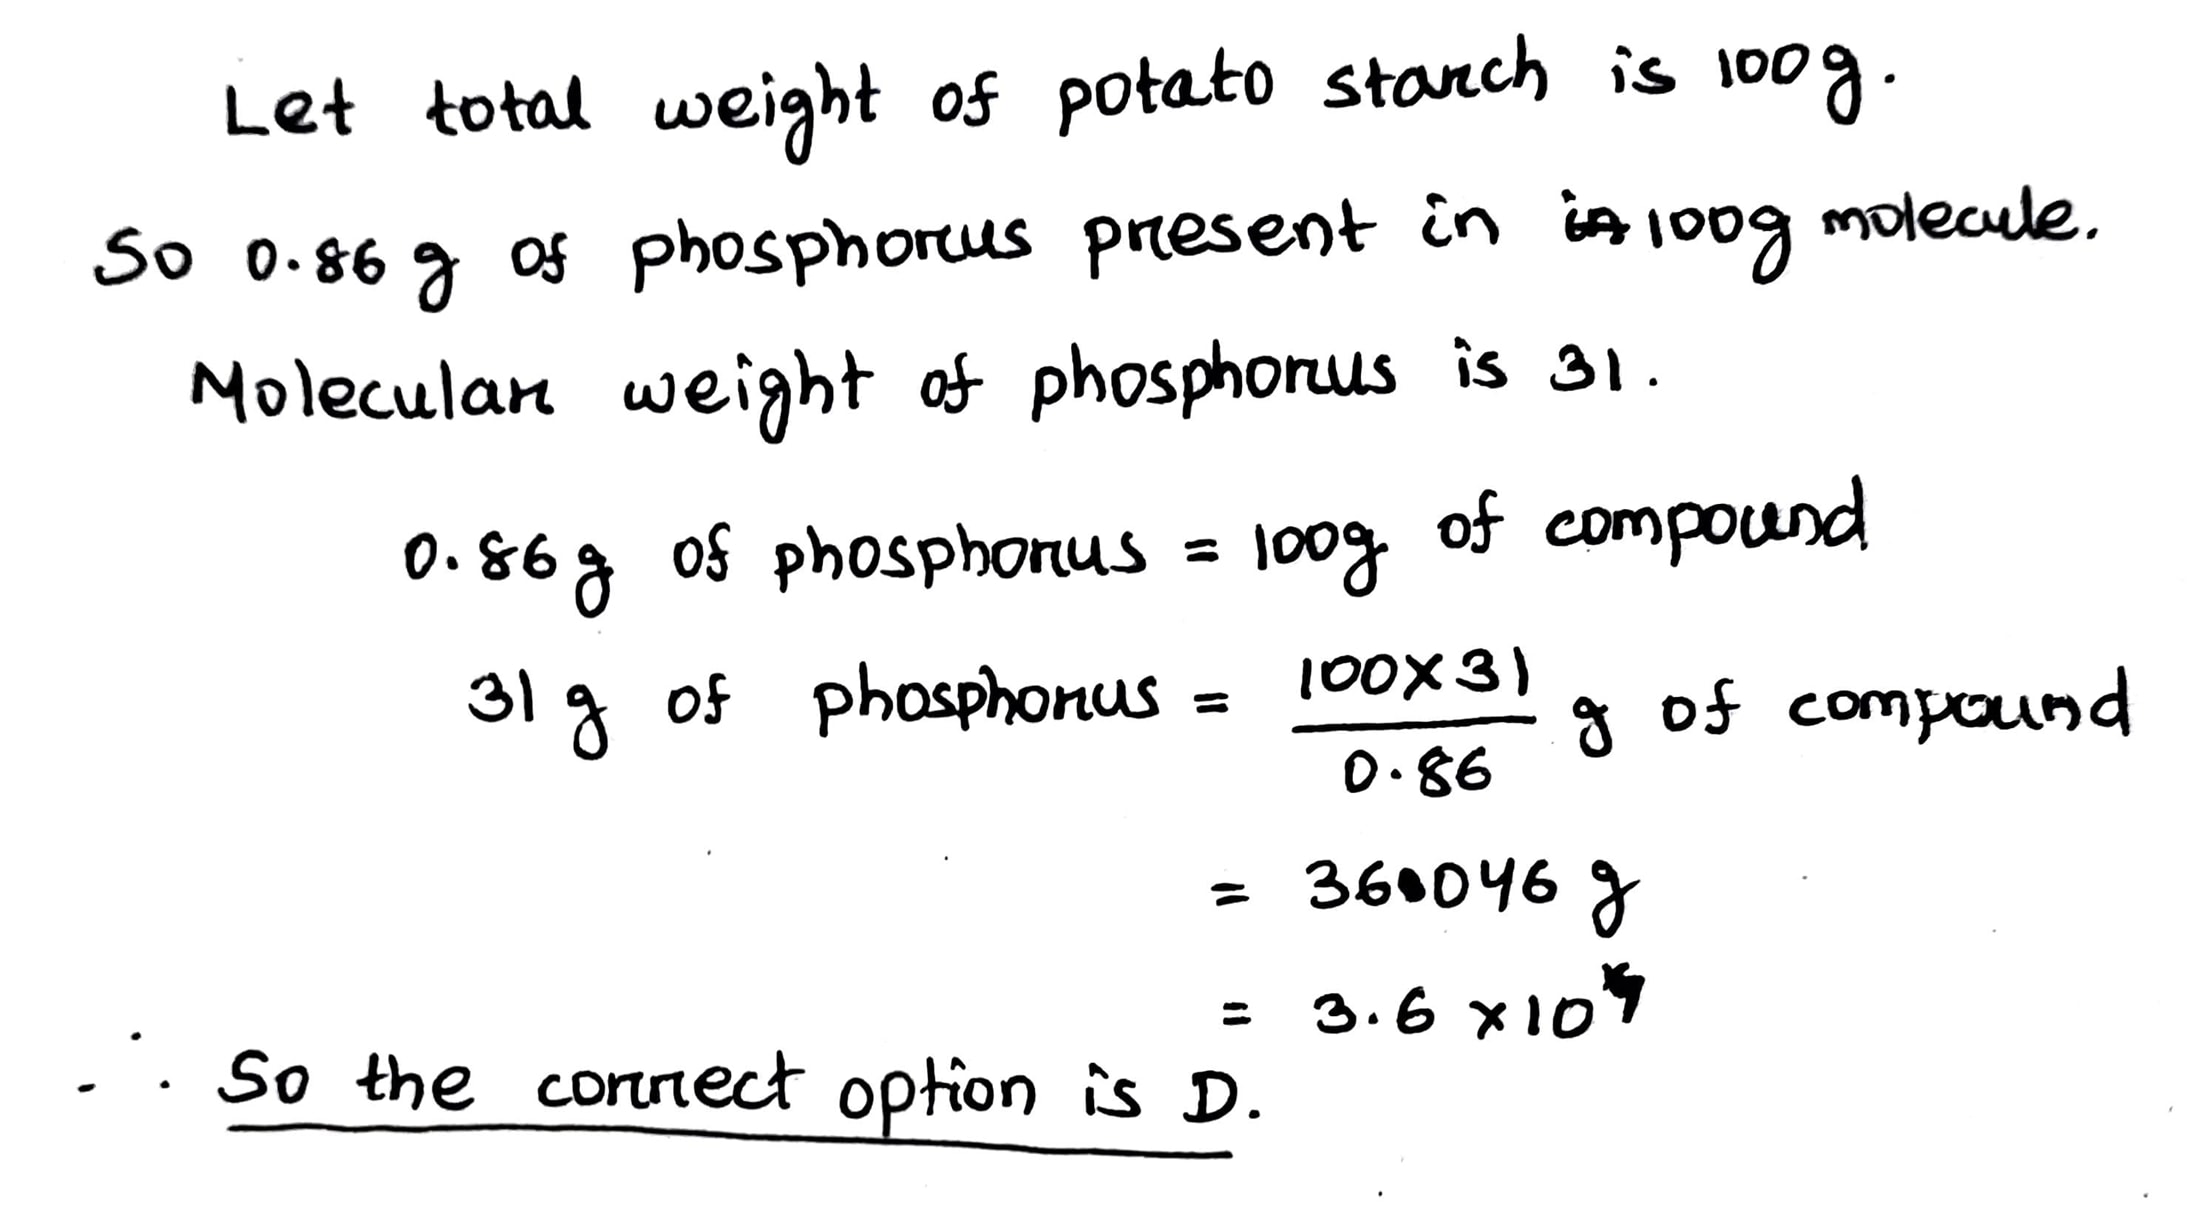 Let total weight of potato starch is 100g.
So 0.86 g of phosphorus present in in 100g molecule.
Molecular weight of phosphorus is 31.
0.86g of phosphorus = 100g of compound
31 g of phosphorus = 100×31 / 0.86 g of compound
= 36 046 g
= 3.6 × 10
∴ So the correct option is D.